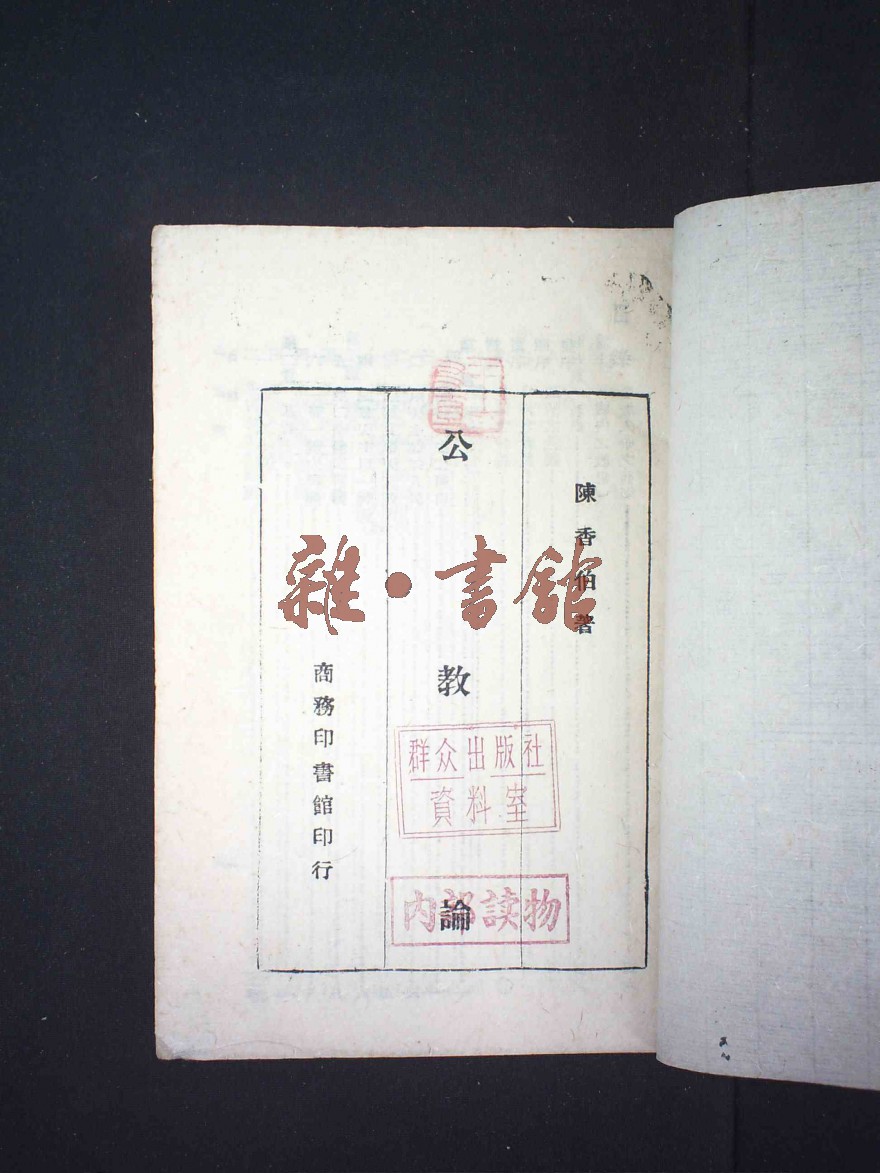 陳香伯著
公教論
商務印書館印行
雜·書館
群众出版社
資料室
内部读物